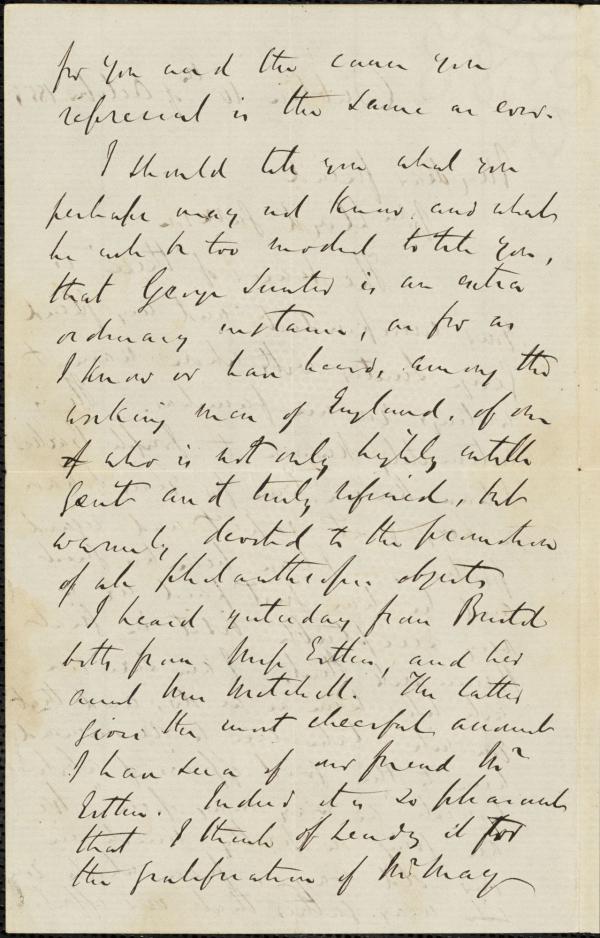 for you and the cause you
represent is the same as ever.
I should tell you what you
perhaps may not know, and what
he will be too modest to tell you,
that George Sunter is an extra
ordinary instance, as far as
I know or have heard, among the
working men of England, of one
who is not only highly intelli
gent and truly refined, but
warmly devoted to the promotion
of all philanthropic objects
I heard yesterday from Bristol
both from Miss Estlin, and her
aunt Miss Mitchell. The latter
gives the most cheerful account
I have seen of our friend Mr
Estlin. Indeed it is so pleasant
that I think of sending it for
the gratification of Mr May